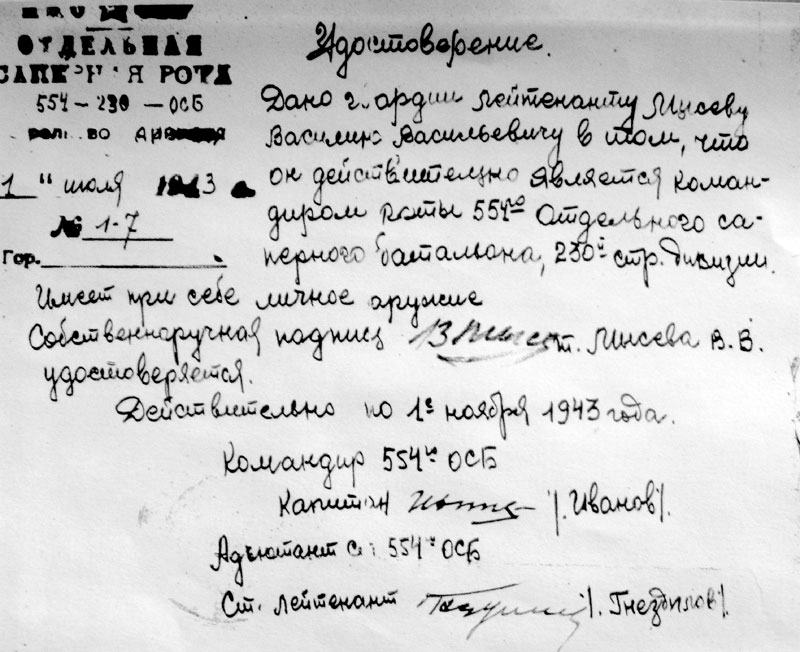 ОТДЕЛЬНАЯ
САПЕРНАЯ РОТА
554-230-ОСБ
1 " июля 1943
№ 1-7
Гор.
Удостоверение.
Дано гвардии лейтенанту Мысеву
Василию Васильевичу в том, что
он действительно является коман-
диром роты 554го Отдельного са-
перного батальона, 230й стр. дивизии.
Имеет при себе личное оружие
Собственноручная подпись т. Мысева В. В.
удостоверяется.
Действительно по 1е ноября 1943 года.
Командир 554го ОСБ
Капитан /. Иванов/.
Адъютант 554го ОСБ
Ст. лейтенант /. Гнездилов/.